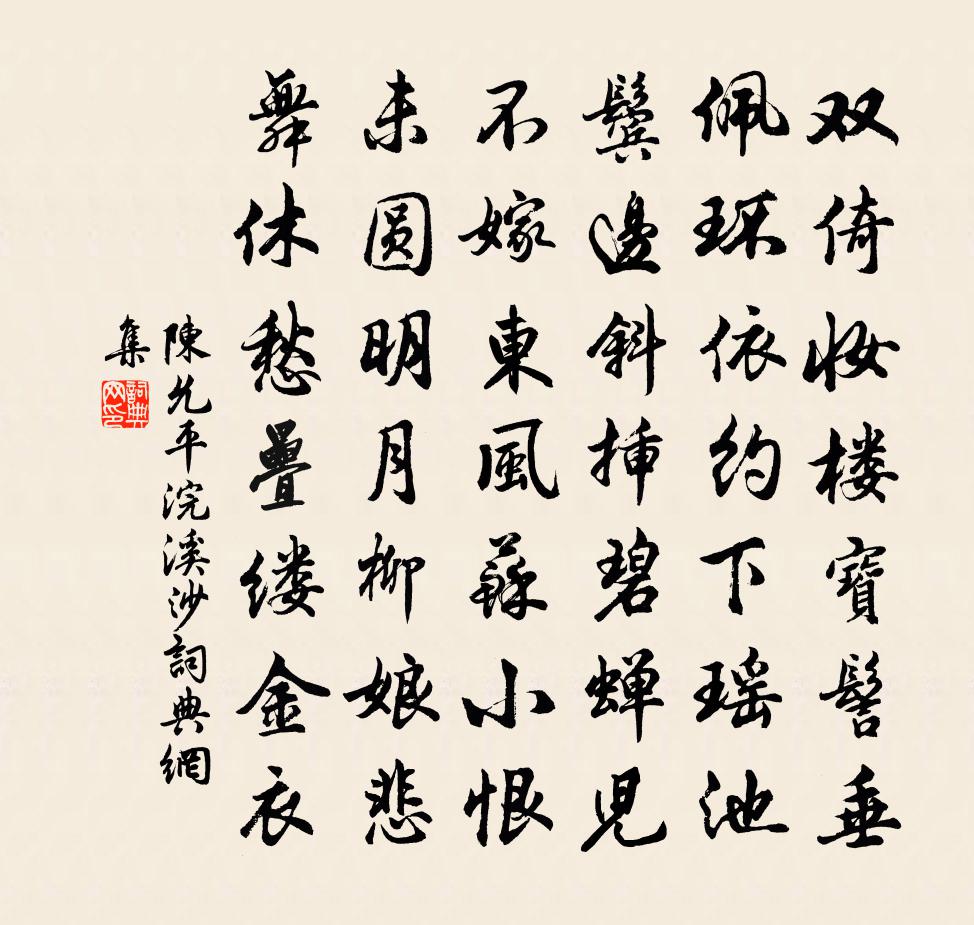 双倚妆楼寶髻垂
佩环依约下瑶池
鬓邊斜挿碧蝉児
不嫁東風蘇小恨
未圆明月柳娘悲
舞休愁疊缕金衣
陳允平浣溪沙詞典網
集
詞典
网印